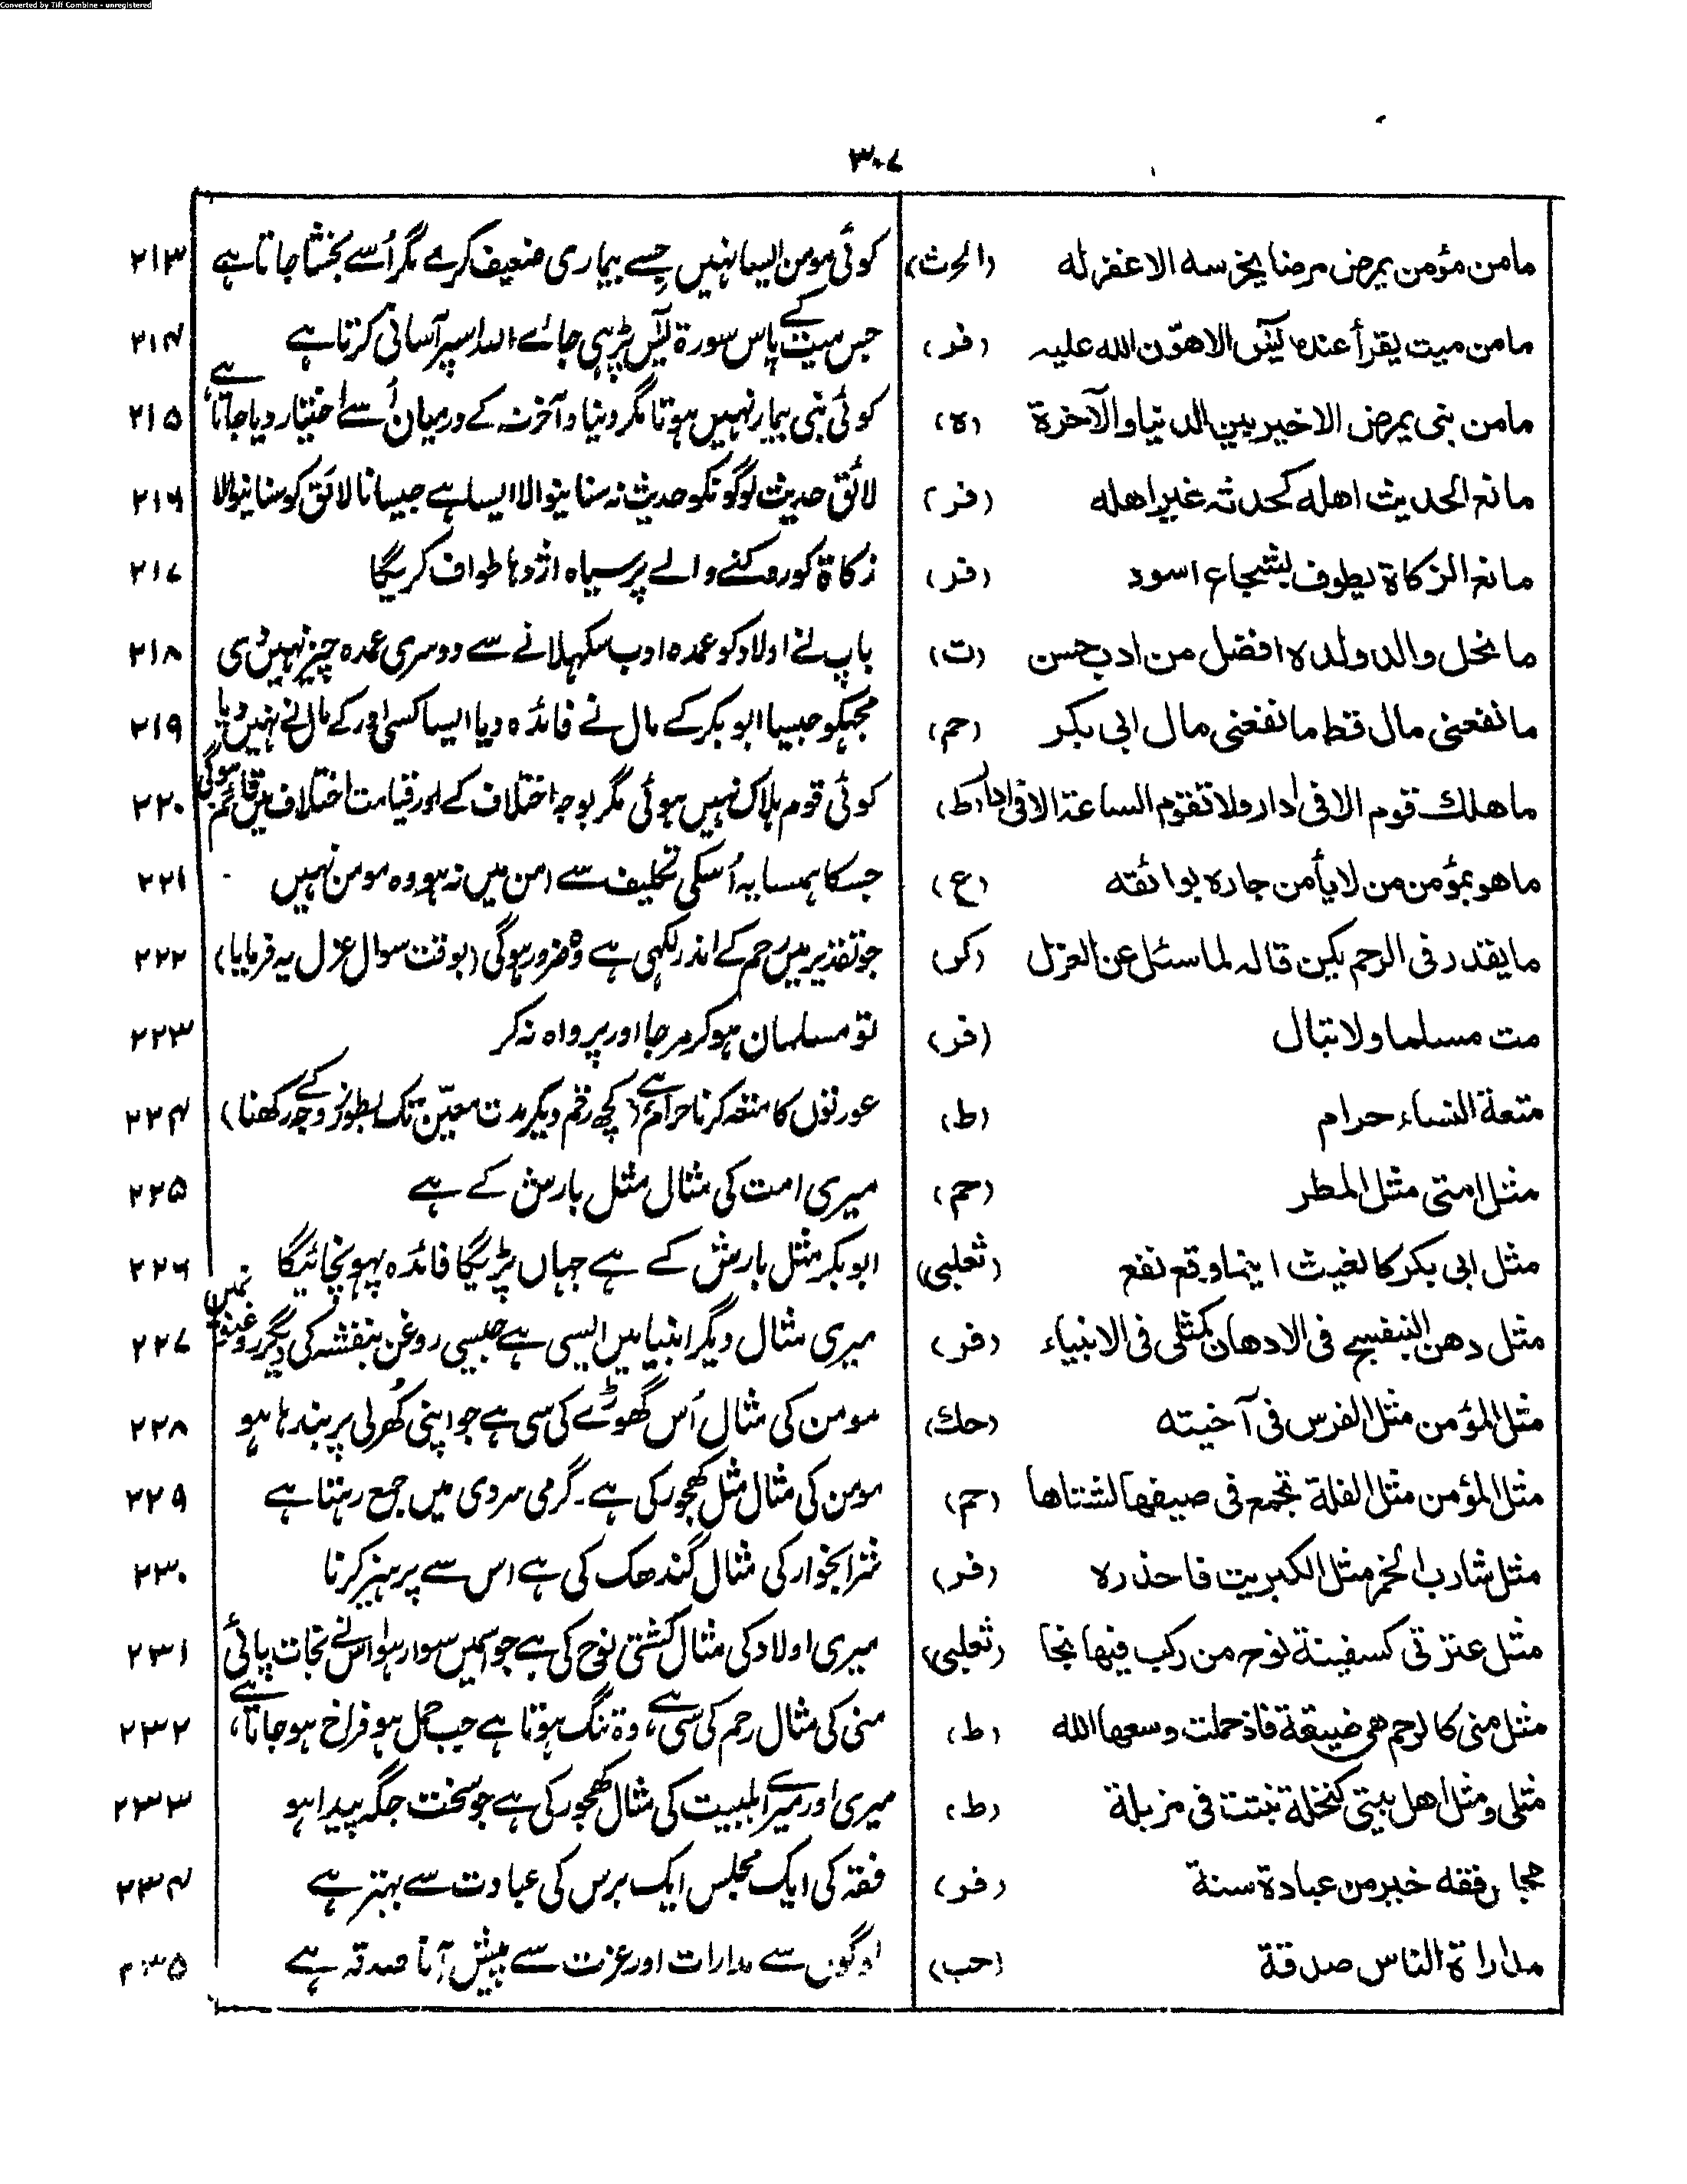 Converted by Tiff Combine - unregistered
٣٠٧
مامن مؤمن يمرض مرضا يخرسه الاغفرله (الحرث) کوئی مومن ایسا نہیں جسے بیماری ضعیف کرے مگر اُسے بخشا جاتا ہے ۲۱۳
مامن ميت يقرأ عنده يٰسٓ الاهوّن الله عليه (فر) جس میت کے پاس سورۃ یٰسٓ پڑہی جائے اللہ اسپر آسانی کرتا ہے ۲۱۴
مامن نبى يمرض الاخير بين الدنيا والآخرة (ه) کوئی نبی بیمار نہیں ہوتا مگر دنیا و آخرت کے درمیان اُسے اختیار دیا جاتا ہے ۲۱۵
مانع الحديث اهله كمحدثه غير اهله (فر) لائق حدیث لوگونکو حدیث نہ سنانیوالا ایسا ہے جیسا نالائق کو سنانیوالا ۲۱۶
مانع الزكاة يطوف بشجاع اسود (فر) زکاۃ کو روکنے والے پر سیاہ اژدہا طواف کریگا ۲۱۷
ما نحل والد ولده افضل من ادب حسن (ت) باپ نے اولاد کو عمدہ ادب سکہلانے سے دوسری عمدہ چیز نہیں دی ۲۱۸
ما نفعنى مال قط ما نفعنى مال ابى بكر (حم) مجہکو جیسا ابوبکر کے مال نے فائدہ دیا ایسا کسی اور کے مال نے نہیں دیا ۲۱۹
ماهلك قوم الا فى ادار ولا تقوم الساعة الا فى ادا (ط) کوئی قوم ہلاک نہیں ہوئی مگر بوجہ اختلاف کے اور قیامت اختلاف میں قائم ہوگی ۲۲۰
ماهو بمؤمن من لا يأمن جاره بوائقه (ع) جسکا ہمسایہ اُسکی تکلیف سے امن میں نہ ہو وہ مومن نہیں ۲۲۱
ما يقدر فى الرحم يكن قاله لما سئل عن العزل (كر) جو تقدیر میں رحم کے اندر لکہی ہے وہ ضرور ہوگی (بوقت سوال عزل یہ فرمایا) ۲۲۲
مت مسلما ولا تبال (فر) تو مسلمان ہوکر مرجا اور پرواہ نہ کر ۲۲۳
متعة النساء حرام (ط) عورتوں کا متعہ کرنا حرام ہے (کچھ رقم دیگر مدت معیّن تک بطور زوجہ کے رکھنا) ۲۲۴
مثل امتى مثل المطر (حم) میری امت کی مثال مثل بارش کے ہے ۲۲۵
مثل ابى بكر كالغيث اينما وقع نفع (ثعلبى) ابوبکر مثل بارش کے ہے جہاں پڑیگا فائدہ پہونچائیگا ۲۲۶
مثل دهن البنفسج فى الادهان كمثلى فى الانبياء (فر) میری مثال دیگر انبیا میں ایسی ہے جیسی روغن بنفشہ کی دیگر روغنونمیں ۲۲۷
مثل المؤمن مثل الفرس فى آخيته (حك) مومن کی مثال اُس گھوڑے کی سی ہے جو اپنی کُھرلی پر بندہا ہو ۲۲۸
مثل المؤمن مثل النملة تجمع فى صيفها لشتاها (حم) مومن کی مثال مثل کھجور کی ہے۔ گرمی سردی میں جمع رہتا ہے ۲۲۹
مثل شارب الخمر مثل الكبريت فاحذره (فر) شرابخوار کی مثال گندھک کی ہے اس سے پرہیز کرنا ۲۳۰
مثل عترتى كسفينة نوح من ركب فيها نجا (ثعلبى) میری اولاد کی مثال کشتی نوح کی ہے جو اسمیں سوار ہوا اس نے نجات پائی ۲۳۱
مثل منى كالرحم هى ضيقة فاذ حملت وسعها الله (ط) منی کی مثال رحم کی سی ہے، وہ تنگ ہوتا ہے جب حمل ہو فراخ ہوجاتا ہے، ۲۳۲
مثلى ومثل اهل بيتى كنخلة نبتت فى مزبلة (ط) میری اور میرے اہلبیت کی مثال کھجور کی ہے جو سخت جگہ پیدا ہو ۲۳۳
مجلس فقه خير من عبادة سنة (فر) فقہ کی ایک مجلس ایک برس کی عبادت سے بہتر ہے ۲۳۴
مداراة الناس صدقة (حب) لوگوں سے مدارات اور عزت سے پیش آنا صدقہ ہے ۲۳۵